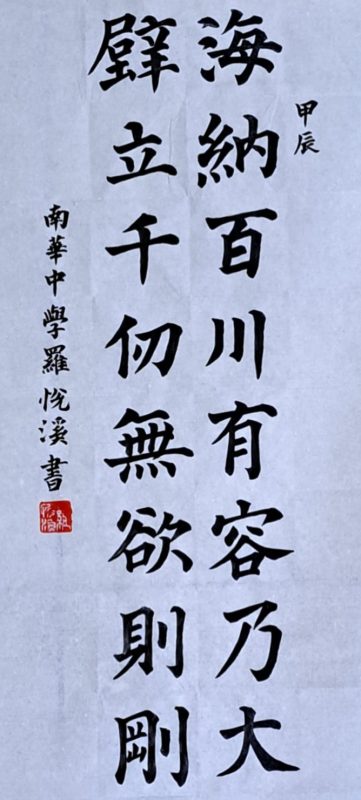 甲辰
海納百川有容乃大
壁立千仞無欲則剛
南華中學羅悅溪書